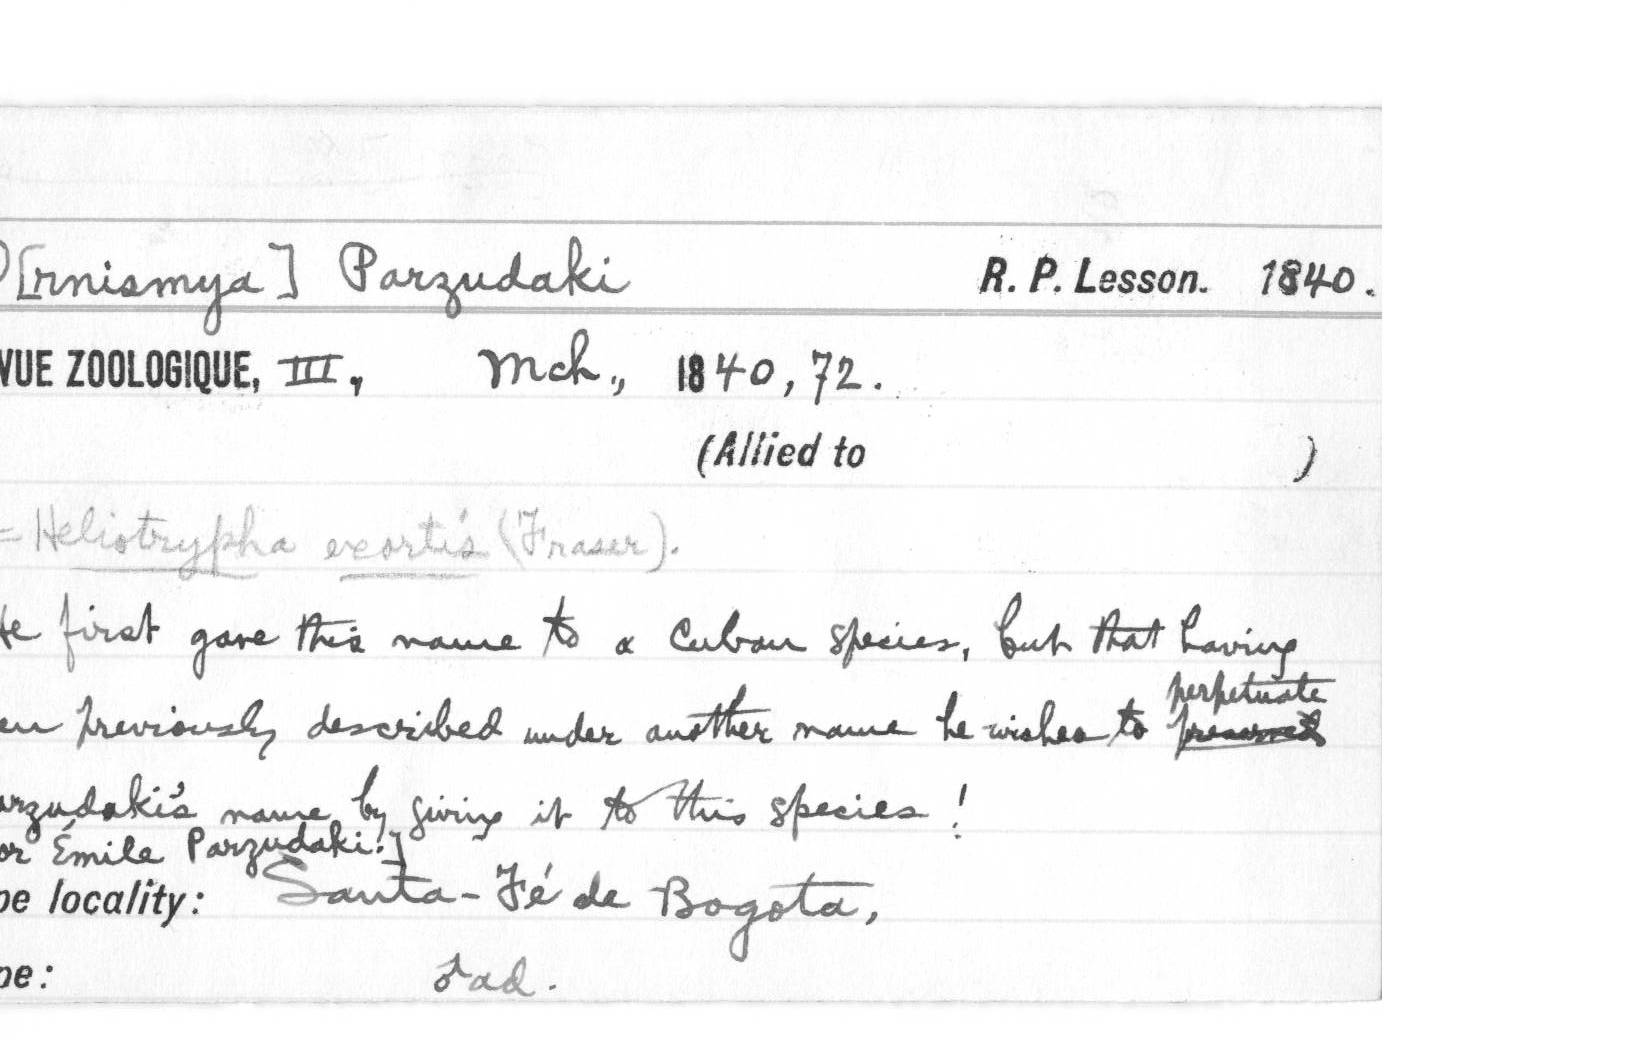 O[rnismya] Parzudaki R. P. Lesson. 1840.
VUE ZOOLOGIQUE, III, Mch., 1840, 72.
(Allied to )
= Heliotrypha exortis (Fraser).
He first gave this name to a Cuban species, but that having
perpetuate
en previously described under another name he wishes to preserved
arzudaki's name by giving it to this species!
or Émile Parzudaki.]
pe locality: Santa-Fé de Bogota,
pe: ♂ ad.